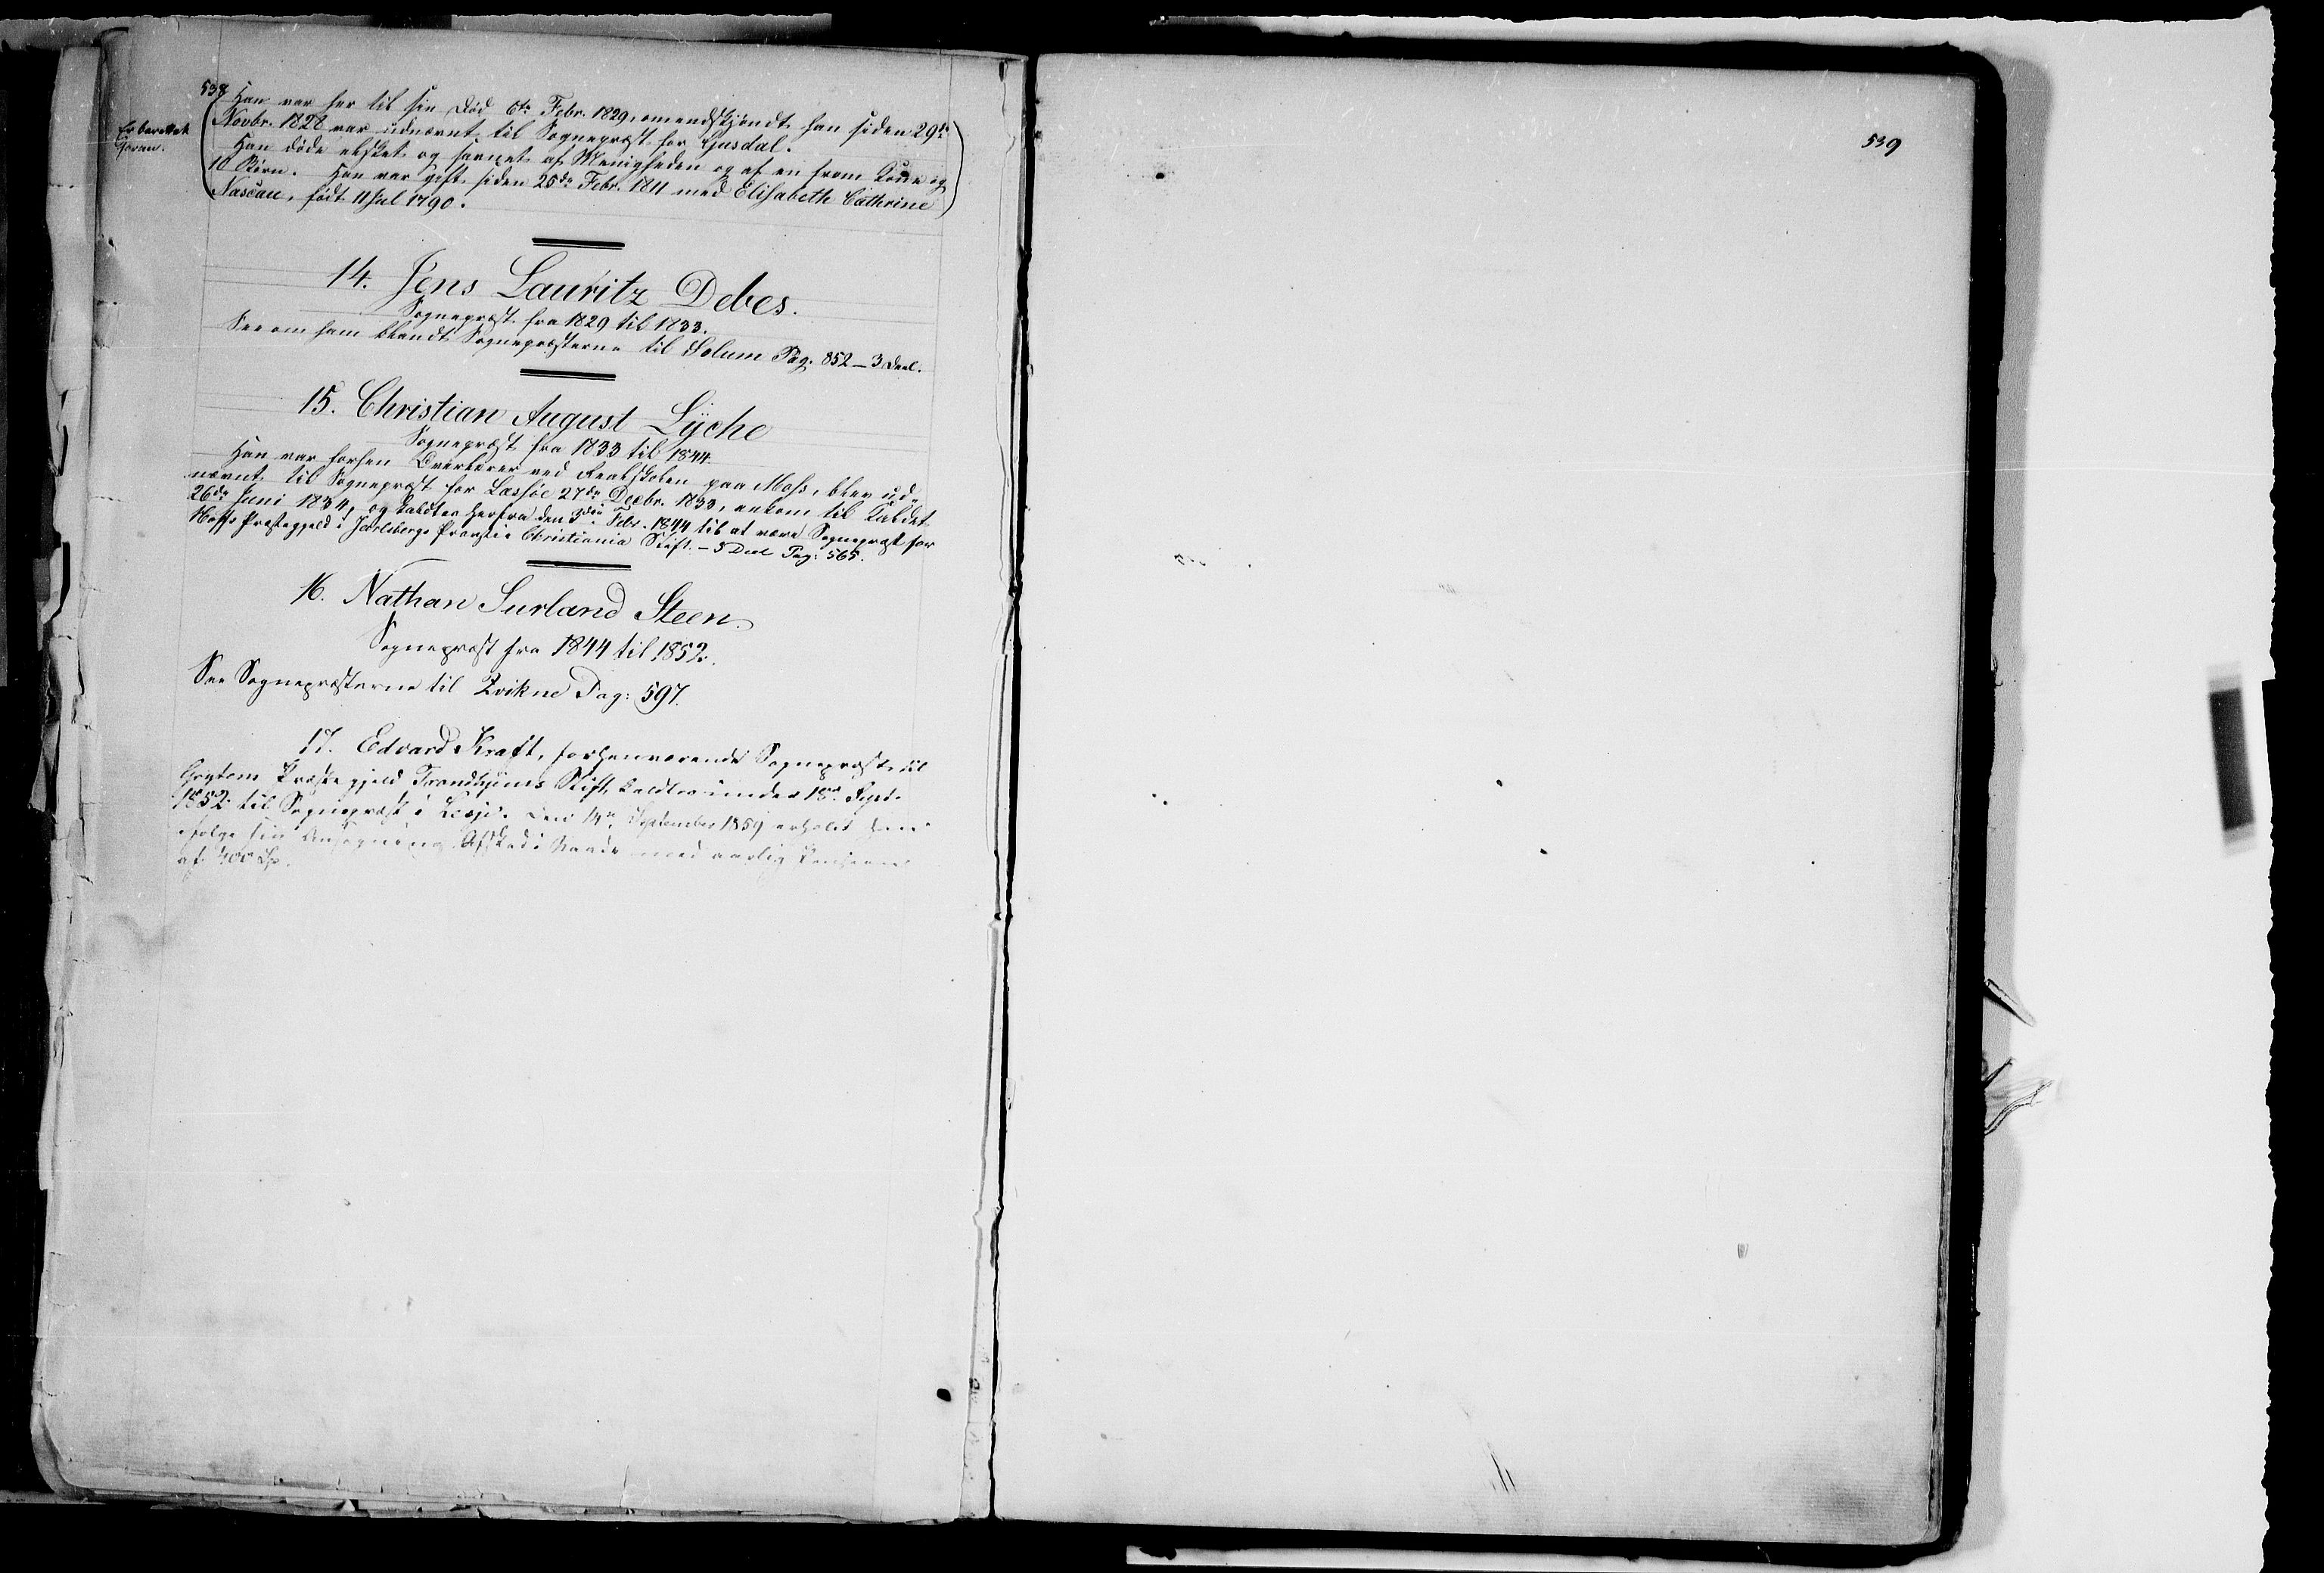 538
Han var her til sin Død 6te Febr. 1829, omendskjøndt han siden 29de
Novbr. 1828 var udnævnt til Sognepræst for Gusdal.
Er berettet
foran.
Han døde elsket og savnet af Menigheden og af en from Kone og
10 Børn. Han var gift siden 25de Febr. 1811 med Elisabeth Cathrine
Nascau, født 11 Jul 1790.
14. Jens Lauritz Debes.
Sognepræst fra 1829 til 1833.
See om ham blandt Sognepræsterne til Solum Pag. 852 – 3 Deel.
15. Christian August Lÿche
Sognepræst fra 1833 til 1844.
Han var forhen Overlærer ved Realskolen paa Moss, blev ud-
nævnt til Sognepræst for Læssöe 27de Decbr. 1833, ankom til Kaldet
26de Juni 1834, og kaldtes herfra den 3die Febr. 1844 til at være Sognepræst for
Præstegjeld i Jarlsbergs Provstie Christiania Stift. – 5 Deel Pag: 565.
16. Nathan Surland Steen.
Sognepræst fra 1844 til 1852.
See Sognepræsterne til Qvikne Pag: 597.
17. Edvard Kraft, forhenværende Sognepræst til
Grytens Præstegjeld Trondhjems Stift kaldtes under 18de Sept.
1852 til Sognepræst i Lesje. Den 14de September 1859 erholdt han
ifølge sin Ansøgning Afsked i Naade med aarlig Pension
af 400 Sp.
539